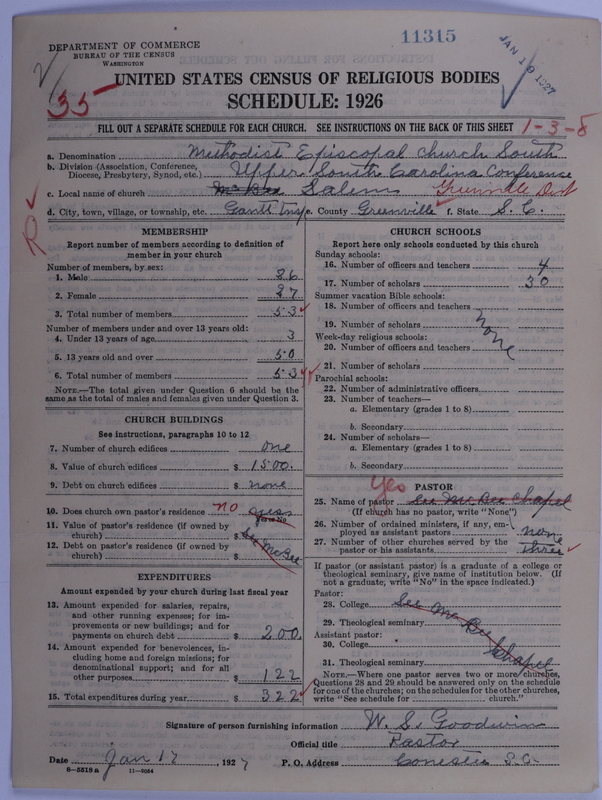 11315
JAN 19 1927
DEPARTMENT OF COMMERCE
BUREAU OF THE CENSUS
WASHINGTON
UNITED STATES CENSUS OF RELIGIOUS BODIES
SCHEDULE: 1926
35
FILL OUT A SEPARATE SCHEDULE FOR EACH CHURCH. SEE INSTRUCTIONS ON THE BACK OF THIS SHEET 1-3-8
a. Denomination Methodist Episcopal Church South
b. Division (Association, Conference, Diocese, Presbytery, Synod, etc.) Upper South Carolina Conference
c. Local name of church McBee Salem Greenville Dist
d. City, town, village, or township, etc. Gantt Tnsp e. County Greenville f. State S. C.
R
MEMBERSHIP
Report number of members according to definition of
member in your church
Number of members, by sex:
1. Male 26
2. Female 27
3. Total number of members 53
Number of members under and over 13 years old:
4. Under 13 years of age 3
5. 13 years old and over 50
6. Total number of members 53
NOTE.—The total given under Question 6 should be the
same as the total of males and females given under Question 3.
CHURCH BUILDINGS
See instructions, paragraphs 10 to 12
7. Number of church edifices one
8. Value of church edifices $ 1500.
9. Debt on church edifices $ none
10. Does church own pastor's residence no yes
Yes or No
11. Value of pastor's residence (if owned by
church) $ See McBee
12. Debt on pastor's residence (if owned by
church) $
EXPENDITURES
Amount expended by your church during last fiscal year
13. Amount expended for salaries, repairs,
and other running expenses; for im-
provements or new buildings; and for
payments on church debt $ 200.
14. Amount expended for benevolences, in-
cluding home and foreign missions; for
denominational support; and for all
other purposes $ 122
15. Total expenditures during year $ 322
CHURCH SCHOOLS
Report here only schools conducted by this church
Sunday schools:
16. Number of officers and teachers 4
17. Number of scholars 30
Summer vacation Bible schools:
18. Number of officers and teachers
19. Number of scholars none
Week-day religious schools:
20. Number of officers and teachers
21. Number of scholars
Parochial schools:
22. Number of administrative officers
23. Number of teachers—
a. Elementary (grades 1 to 8)
b. Secondary
24. Number of scholars—
a. Elementary (grades 1 to 8)
b. Secondary
PASTOR
yes
25. Name of pastor See McBee Chapel
(If church has no pastor, write "None")
26. Number of ordained ministers, if any, em-
ployed as assistant pastors none
27. Number of other churches served by the
pastor or his assistants three
If pastor (or assistant pastor) is a graduate of a college or
theological seminary, give name of institution below. (If
not a graduate, write "No" in the space indicated.)
Pastor:
28. College See McBee Chapel
29. Theological seminary
Assistant pastor:
30. College
31. Theological seminary
NOTE.—Where one pastor serves two or more churches,
Questions 28 and 29 should be answered only on the schedule
for one of the churches; on the schedules for the other churches,
write "See schedule for church."
Signature of person furnishing information W. S. Goodwin
Official title Pastor
Date Jan 17, 1927 P. O. Address Conestee S.C.
8-5518 a 11-9054